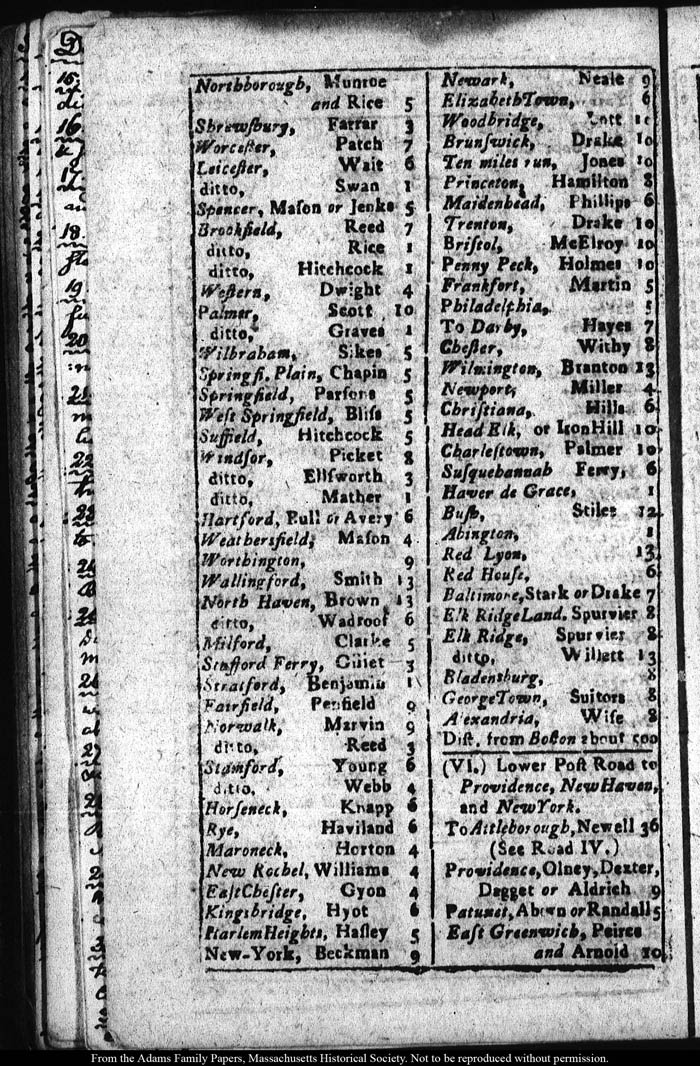 Northborough, Munroe
and Rice 5
Shrewsbury, Farrar 3
Worcester, Patch 7
Leicester, Wait 6
ditto, Swan 1
Spencer, Maſon or Jenks 5
Brookfield, Reed 7
ditto, Rice 1
ditto, Hitchcock 1
Weſtern, Dwight 4
Palmer, Scott 10
ditto, Graves 1
Wilbraham, Sikes 5
Springfi. Plain, Chapin 5
Springfield, Parſons 5
Weſt Springfield, Bliſs 5
Suffield, Hitchcock 5
Windſor, Picket 8
ditto, Ellſworth 3
ditto, Mather 1
Hartford, Bull or Avery 6
Weathersfield, Maſon 4
Worthington, 9
Wallingford, Smith 13
North Haven, Brown 13
ditto, Wadroof 6
Milford, Clarke 5
Stafford Ferry, Guiet 3
Stratford, Benjamin 1
Fairfield, Penfield 9
Norwalk, Marvin 9
ditto, Reed 3
Stamford, Young 6
ditto, Webb 4
Horſeneck, Knapp 6
Rye, Haviland 6
Maroneck, Horton 4
New Rochel, Williams 4
EaſtCheſter, Gyon 4
Kingsbridge, Hyot 6
HarlemHeights, Haſley 5
New-York, Beckman 9
Newark, Neale 9
ElizabethTown, 6
Woodbridge,
Brunſwick, Drake 10
Ten miles run, Jones 10
Princeton, Hamilton 8
Maidenhead, Phillips 6
Trenton, Drake 10
Briſtol, McElroy 10
Penny Peck, Holmes 10
Frankfort, Martin 5
Philadelphia, 5
To Darby, Hayes 7
Cheſter, Withy 8
Wilmington, Branton 13
Newport, Miller 4
Chriſtiana, Hills 6
Head Elk, or Iron Hill 10
Charleſtown, Palmer 10
Suſquehannah Ferry, 6
Haver de Grace, 1
Buſh, Stiles 12
Abington, 1
Red Lyon, 13
Red Houſe, 6
Baltimore, Stark or Drake 7
Elk RidgeLand. Spurvier 8
Elk Ridge, Spurvier 8
ditto, Willett 13
Bladensburg, 8
GeorgeTown, Suitors 8
Alexandria, Wiſe 8
Diſt. from Boſton about 500
(VI.) Lower Poſt Road to
Providence, New Haven,
and New York.
To Attleborough, Newell 36
(See Road IV.)
Providence, Olney, Dexter,
Dagget or Aldrich 9
Patuxet, or Randall 5
Eaſt Greenwich, Peirce
and Arnold 10
From the Adams Family Papers, Massachusetts Historical Society. Not to be reproduced without permission.